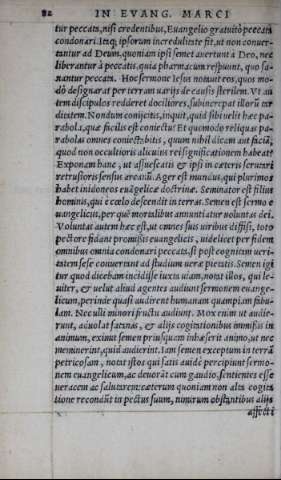 82 IN EVANG. MARCI
tur peccata, nisi credentibus, Euangelio gratuitò peccata
condonari. Itaq; ipsorum incredulitate fit, ut non conuer-
tantur ad Deum, quoniam ipsi semet auertunt à Deo, nec
liberantur à peccatis, quia pharmacum respuunt, quo sa-
nantur peccata. Hoc sermone Iesus notauit eos, quos mo-
dò designarat per terram uarijs de causis sterilem. Vt au
tem discipulos redderet dociliores, subincrepat illorū tar
ditatem. Nondum conijcitis, inquit, quid sibi uelit hæc pa-
rabola, quæ facilis est coniectu? Et quomodo reliquas pa-
rabolas omnes coniectabitis, quum nihil dicam aut faciā,
quod non occultioris alicuius rei significationem habeat?
Exponam hanc, ut assuescatis & ipsi in cæteris scrutari
retrusioris sensus arcanū. Ager est mundus, qui plurimos
habet inidoneos euāgelicæ doctrinæ. Seminator est filius
hominis, qui è cœlo descendit in terras. Semen est sermo e
uangelicus, per quē mortalibus annuntiatur uoluntas dei.
Voluntas autem hæc est, ut omnes suis uiribus diffisi, toto
pectore fidant promissis euangelicis, uidelicet per fidem
omnibus omnia condonari peccata, si post cognitam ueri-
tatem sese conuertant ad studium ueræ pietatis. Semen igi
tur quod dicebam incidisse iuxta uiam, notat illos, qui le-
uiter, & uelut aliud agentes audiunt sermonem euange-
licum, perinde quasi audirent humanam quampiam fabu-
lam. Nec ulli minori fructu audiunt. Mox enim ut audie-
runt, aduolat satanas, & alijs cogitationibus immissis in
animum, eximit semen priusquam inhæserit animo, ut nec
meminerint, quid audierint. Iam semen exceptum in terrā
petricosam, notat istos qui satis auidè percipiunt sermo-
nem euangelicum, ac deuorāt cum gaudio, sentientes esse
ueracem ac salutarem: cæterum quoniam non alta cogita
tione recondūt in pectus suum, nimirum obstantibus alijs
affecti